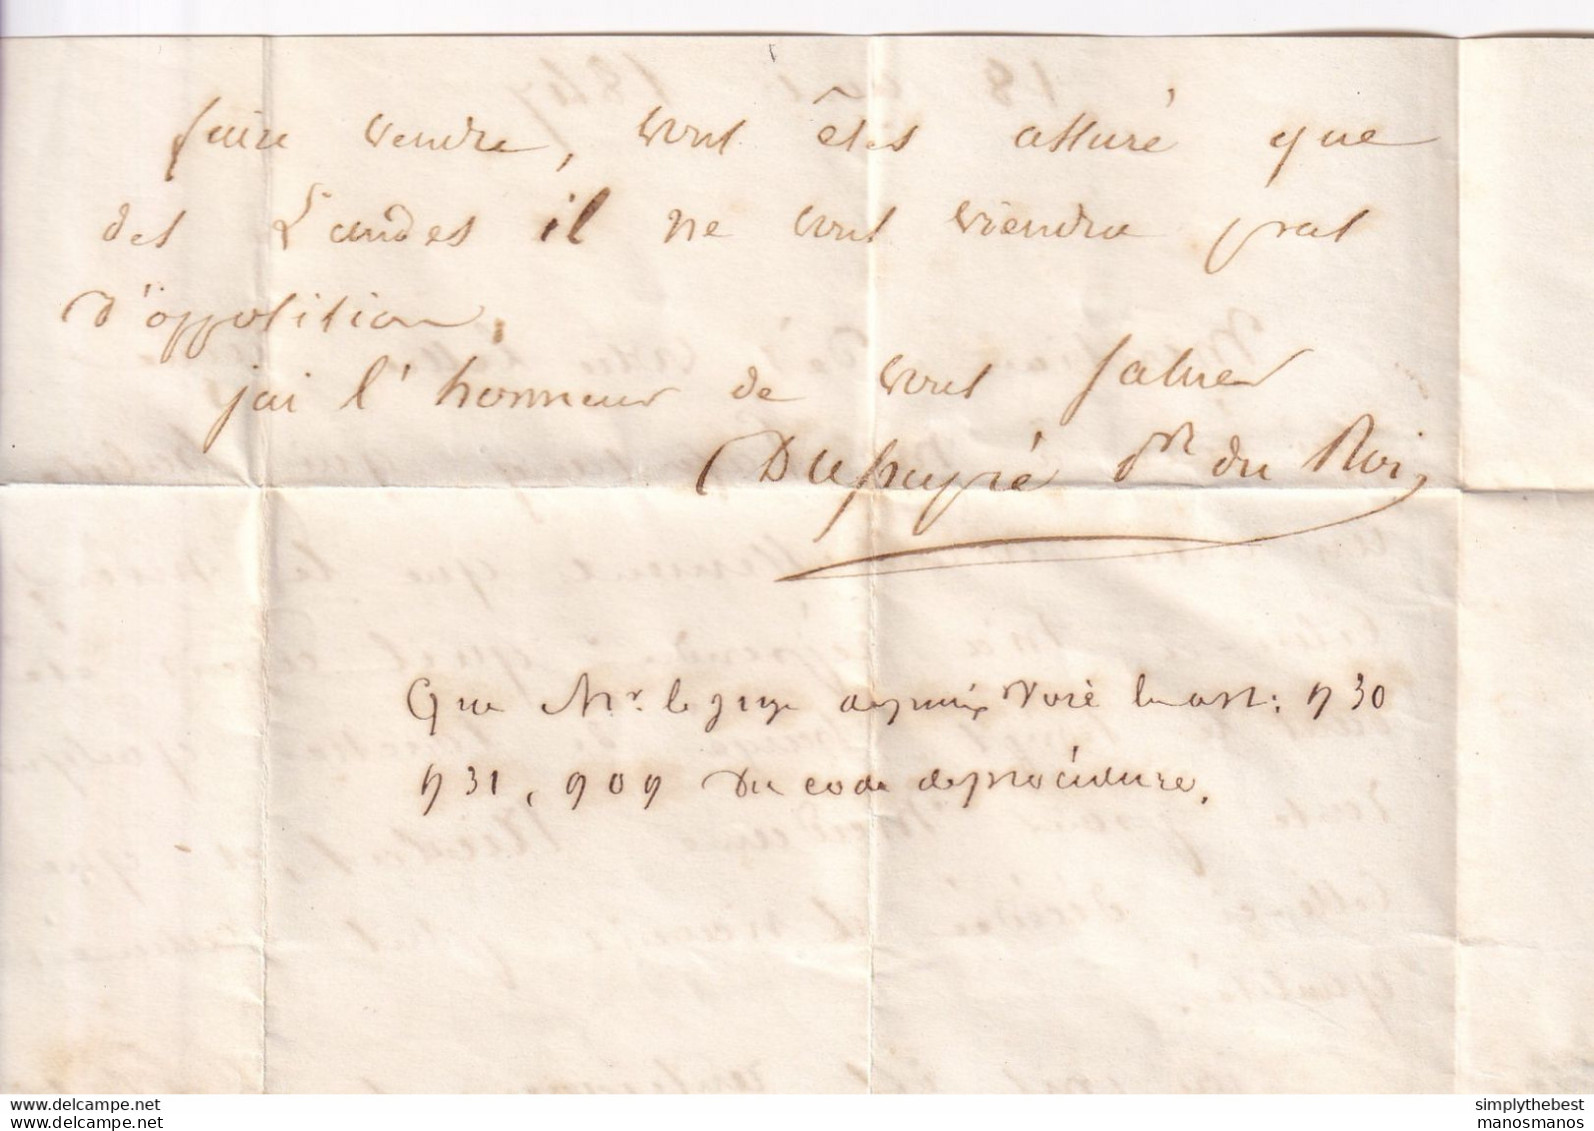 faire vendre, vous êtes assuré que
des Landes il ne vous viendra pas
d'opposition.
jai l'honneur de vous saluer
Dupeyré Pr du Roi
Que Mr. le juge de paix voie les art. 930
931, 909 du code de procédure.
www.delcampe.net
www.delcampe.net
simplythebest
manosmanos